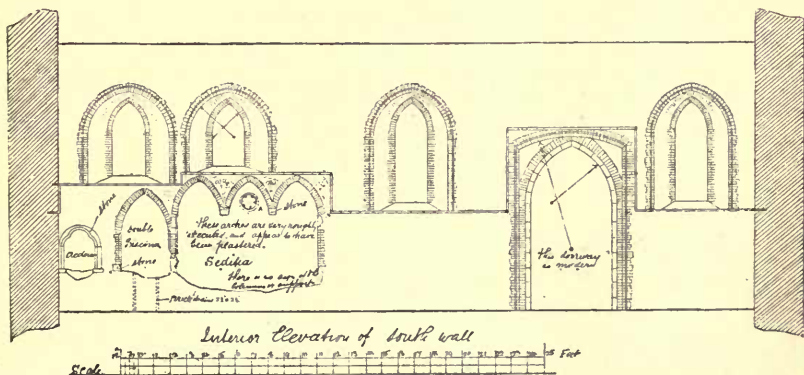 stone
Double
Piscina
stone
stone
A
These arches are very roughly
executed, and appear to have
been plastered.
Sedilia
There is no sign of the
columns or supports
this doorway
is modern
Interior Elevation of South wall
Scale
Feet